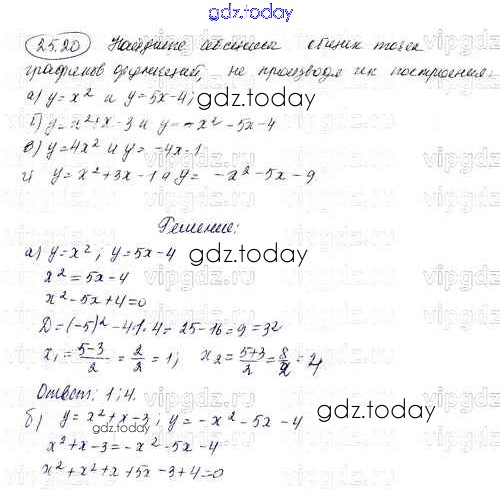 gdz.today
25.20 Найдите абсциссы общих точек
графиков функций, не производя их построения:
а) y = x² и y = 5x - 4;
gdz.today
б) y = x² + x - 3 и y = -x² - 5x - 4
в) y = 4x² и y = -4x - 1
г) y = x² + 3x - 1 и y = -x² - 5x - 9
Решение:
а) y = x²; y = 5x - 4
gdz.today
x² = 5x - 4
x² - 5x + 4 = 0
D = (-5)² - 4·1·4 = 25 - 16 = 9 = 3²
x₁ = (5-3)/2 = 2/2 = 1; x₂ = (5+3)/2 = 8/2 = 4
Ответ: 1; 4.
б) y = x² + x - 3; y = -x² - 5x - 4
gdz.today
x² + x - 3 = -x² - 5x - 4
x² + x² + x + 5x - 3 + 4 = 0